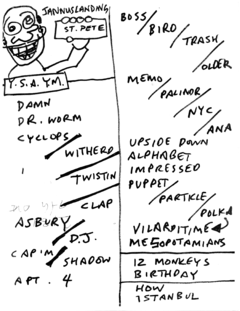 JANNUSLANDING
ST. PETE
Y.S.A.YM.
DAMN
DR. WORM
CYCLOPS
WITHERD
TWISTIN
CLAP
ASBURY
D.J.
CAPIM
SHADOW
APT. 4
BOSS/
BIRD/
TRASH/
OLDER
MEMO/
PALINDR/
NYC/
ANA
UPSIDE DOWN
ALPHABET
IMPRESSED
PUPPET/
PARTICLE/
POLKA
MESOPOTAMIANS
12 MONKEYS
BIRTHDAY
HOW
ISTANBUL